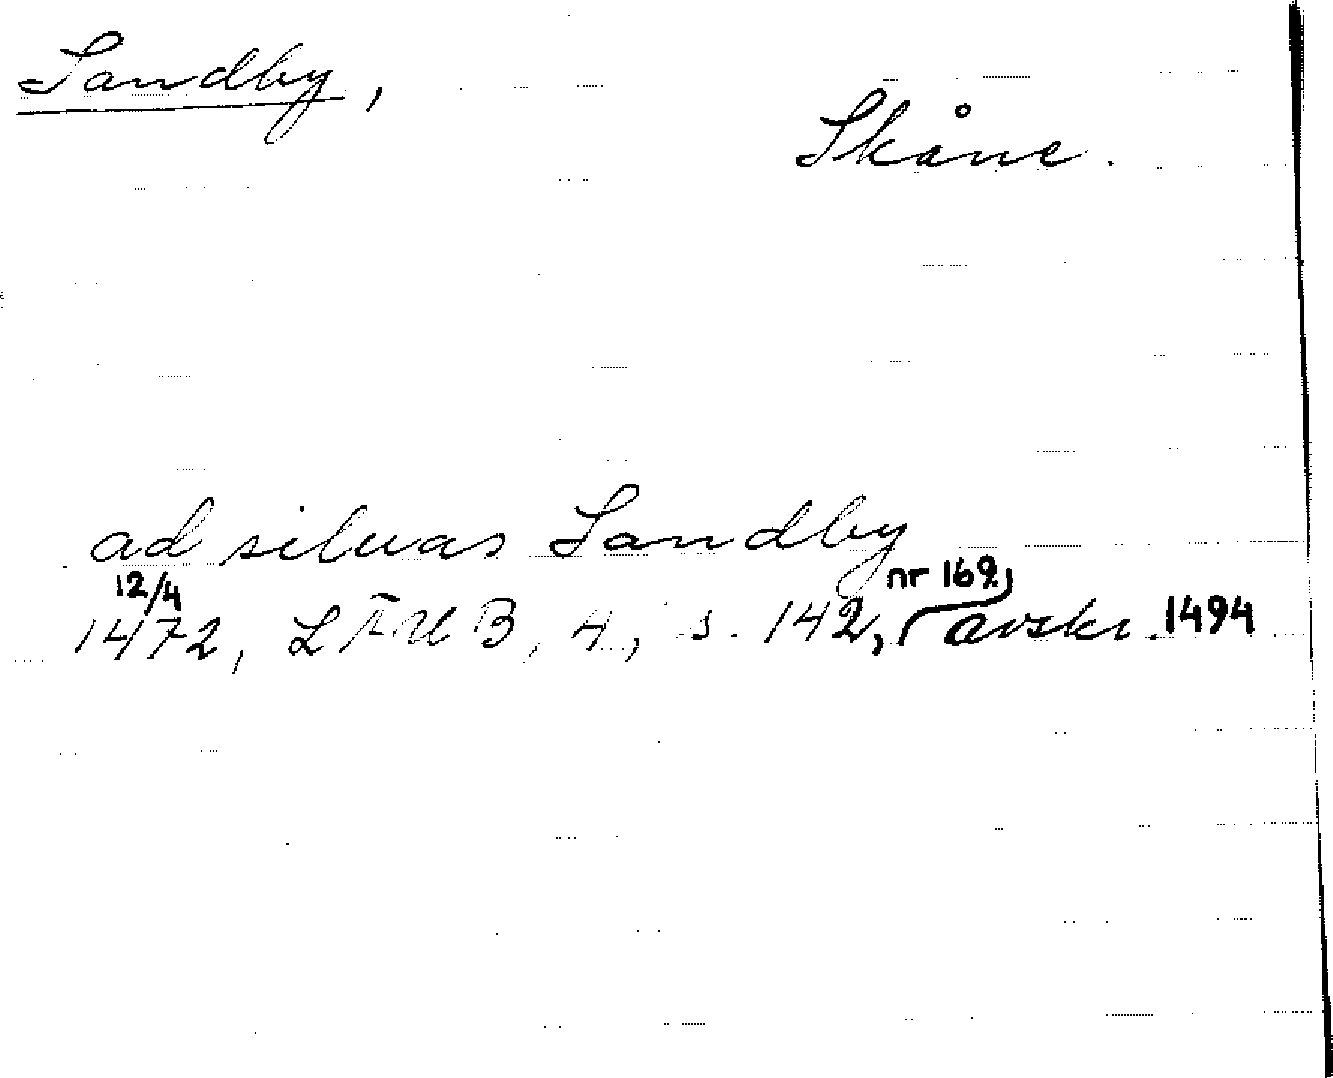 Sandby,
Skåne.
ad siluas Sandby
12/4 1472, LÄUB, 4, s. 142, nr 169, avskr. 1494